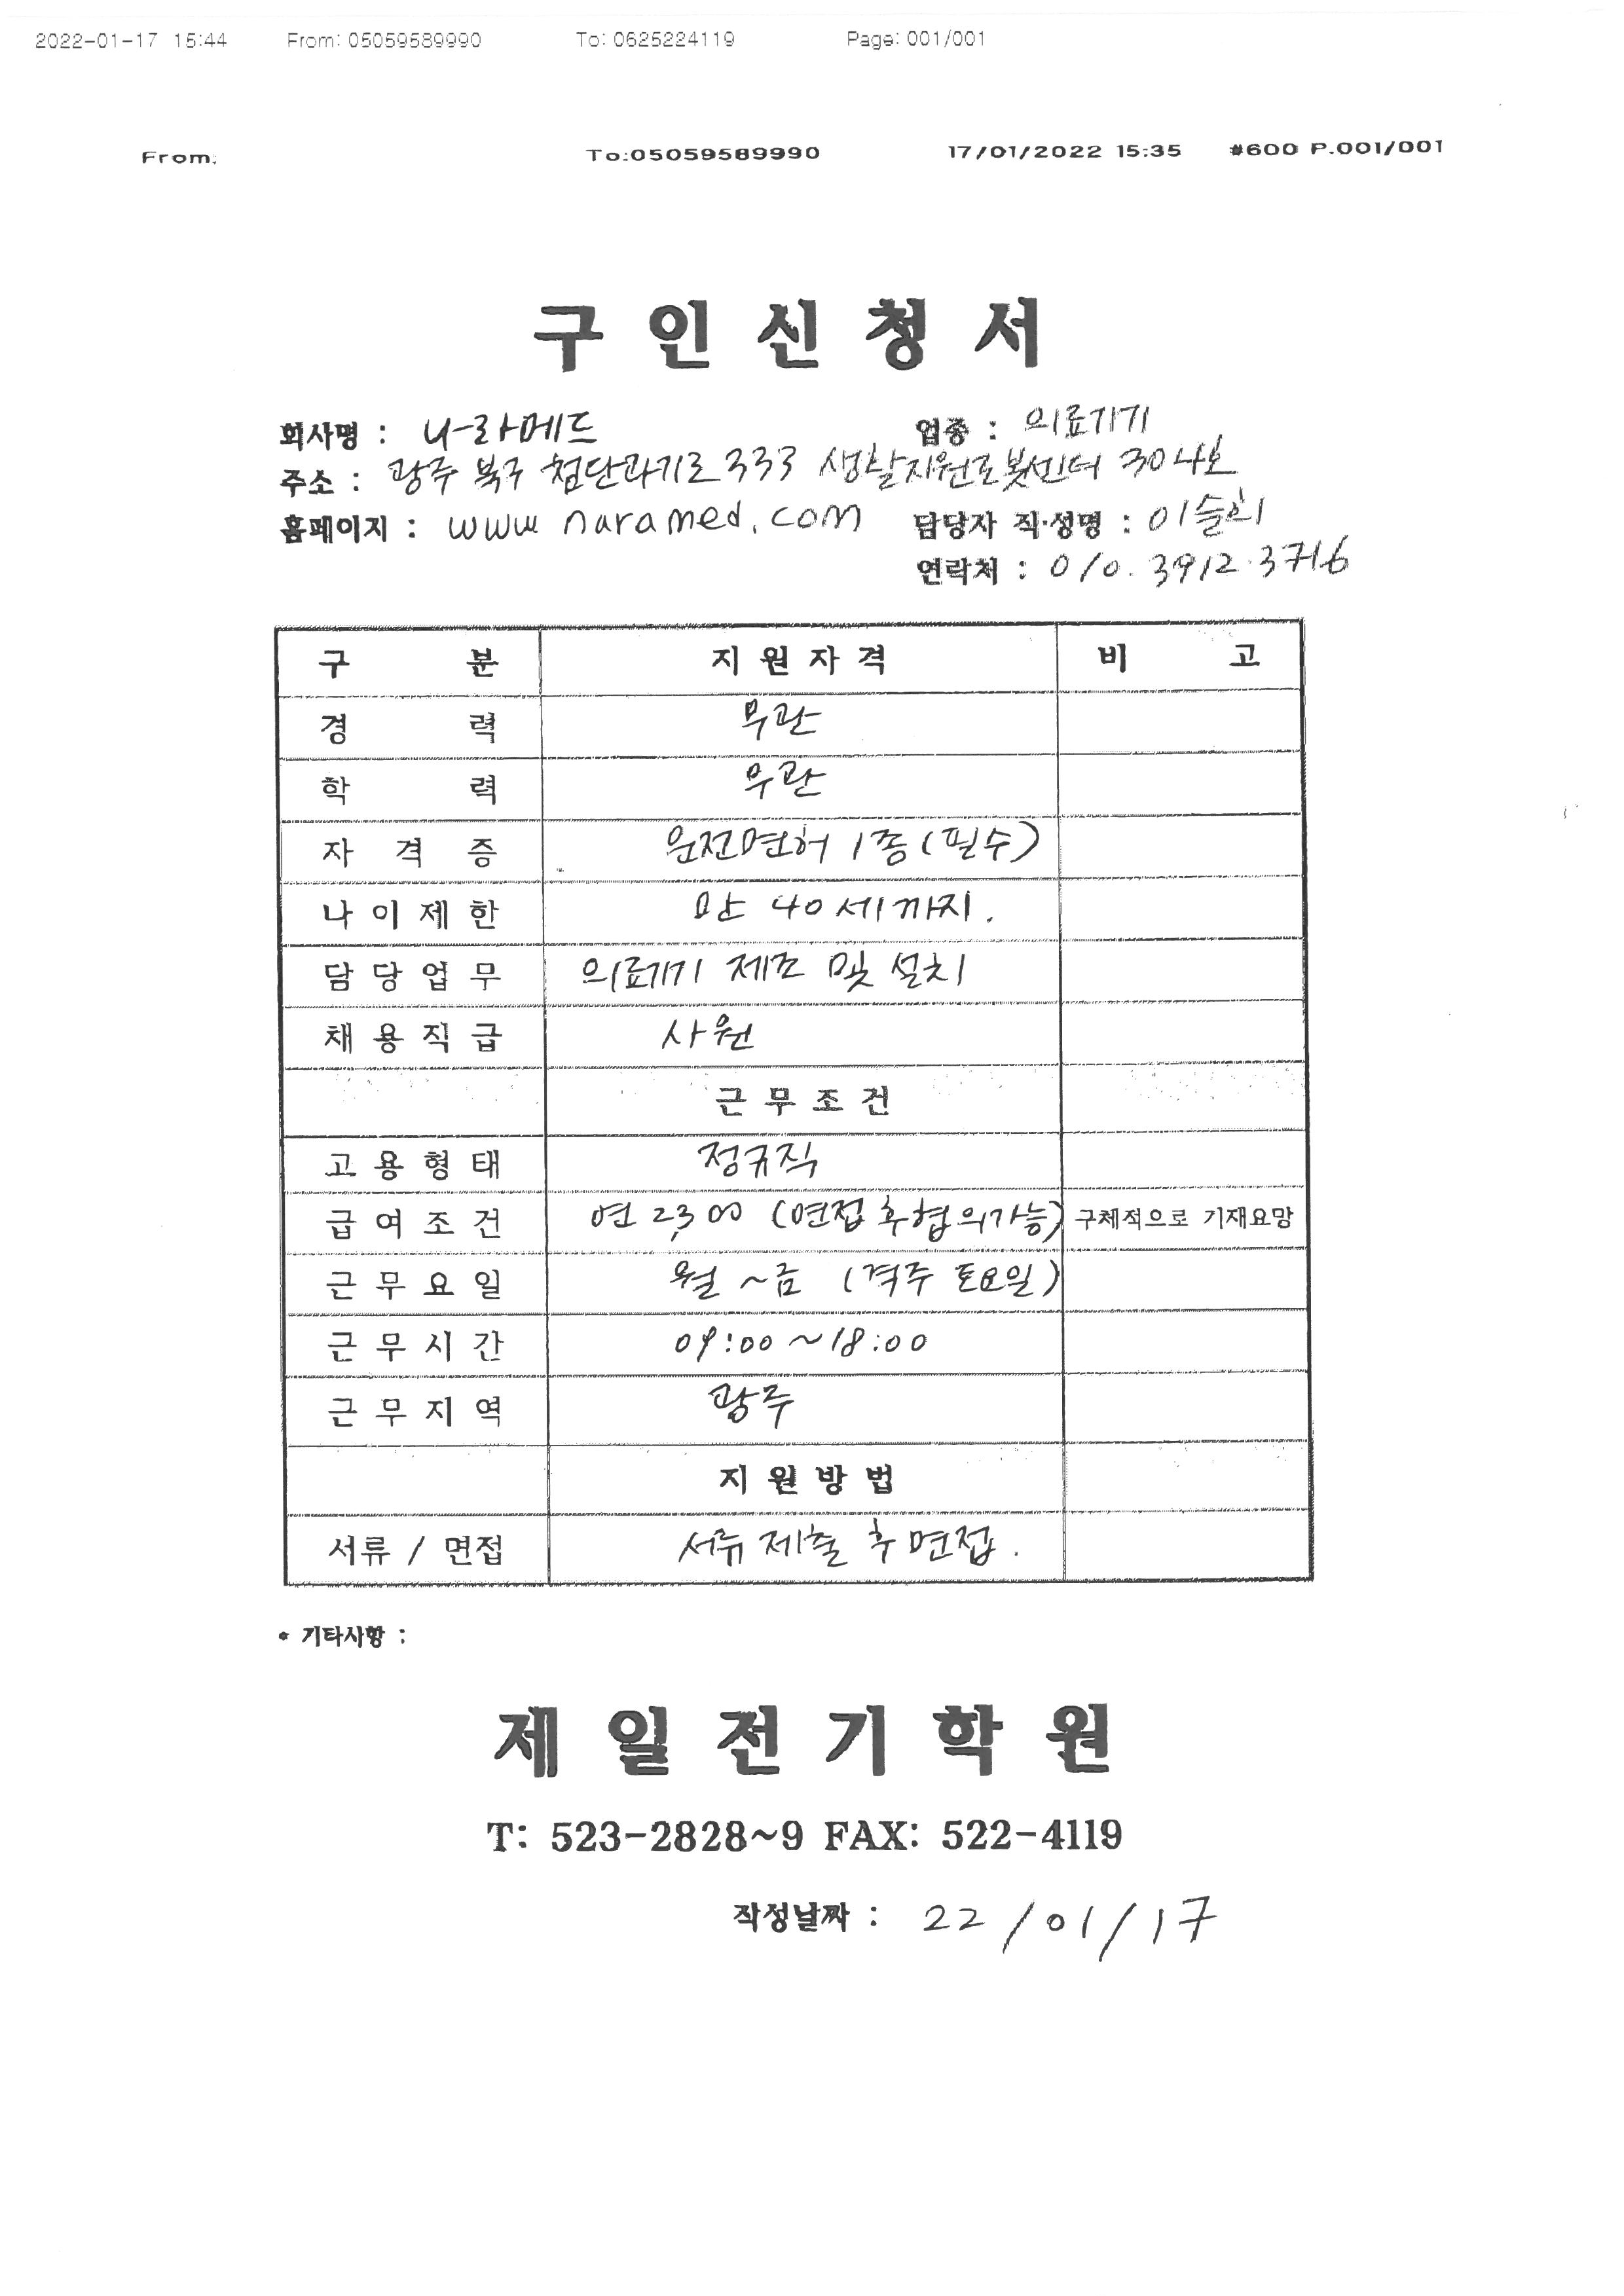 2022-01-17 15:44 From: 05059589990 To: 0625224119 Page: 001/001
From: To:05059589990 17/01/2022 15:35 #600 P.001/001
구 인 신 청 서
회사명 : 나라메드 업종 : 의료기기
주소 : 광주 북구 첨단과기로 333 생활지원로봇센터 304호
홈페이지 : www naramed.com 담당자 직·성명 : 이슬희
연락처 : 010. 3912. 3716
구 분 지원자격 비 고
경 력 무관
학 력 무관
자 격 증 운전면허 1종 (필수)
나이제한 만 40세까지.
담당업무 의료기기 제조 및 설치
채용직급 사원
근무조건
고용형태 정규직
급여조건 연 2300 (면접 후 협의가능) 구체적으로 기재요망
근무요일 월 ~ 금 (격주 토요일)
근무시간 09:00 ~ 18:00
근무지역 광주
지원방법
서류 / 면접 서류 제출 후 면접.
* 기타사항 :
제 일 전 기 학 원
T: 523-2828~9 FAX: 522-4119
작성날짜 : 22 / 01 / 17